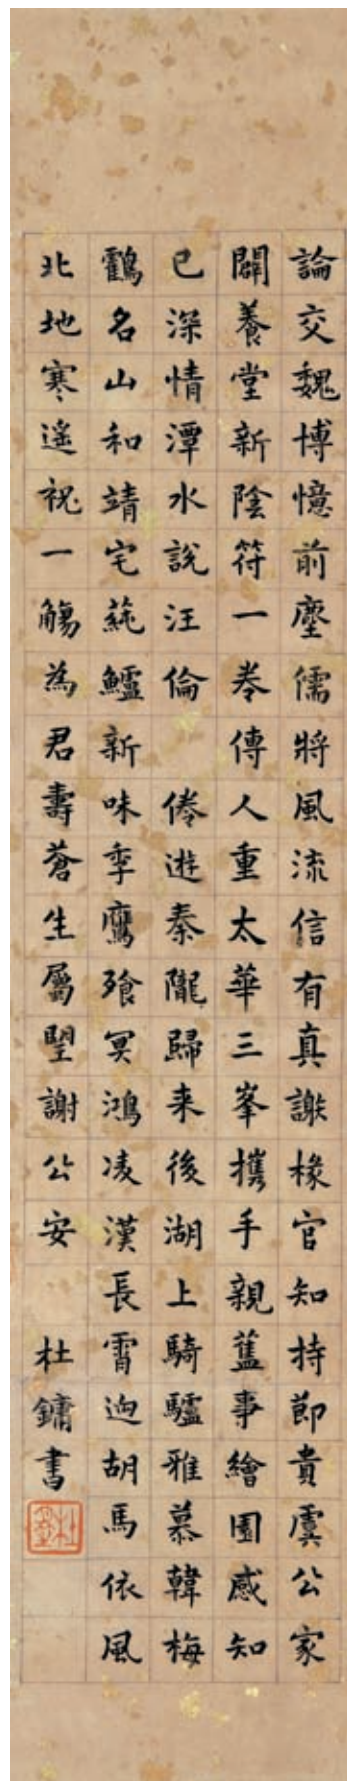 論交魏博憶前塵儒將風流信有真謝椽官知持節貴虞公家
闢養堂新陰符一卷傳人重太華三峯攜手親舊事繪圖感知
已深情潭水說汪倫 倦遊秦隴歸来後湖上騎驢雅慕韓梅
鸖名山和靖宅蒓鱸新味季鷹飱冥鴻凌漢長霄迥胡馬依風
北地寒遥祝一觴為君壽蒼生屬望謝公安 杜鏞書